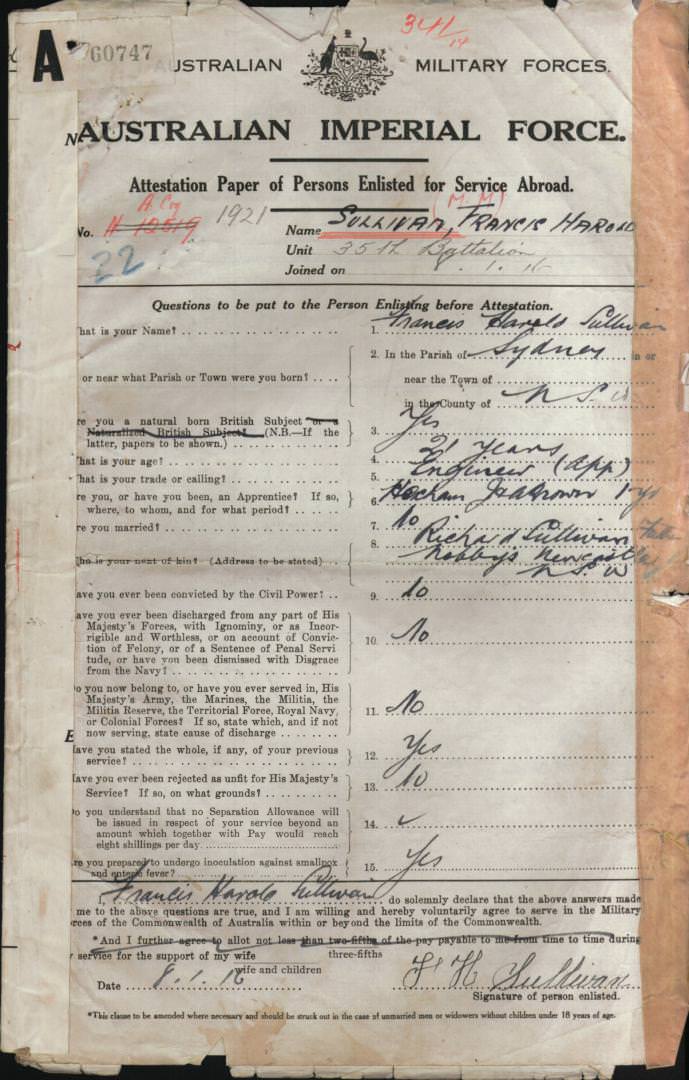 34/14
A 60747
AUSTRALIAN MILITARY FORCES.
AUSTRALIAN IMPERIAL FORCE.
Attestation Paper of Persons Enlisted for Service Abroad.
A Coy (M.M)
No. 1921 Name SULLIVAN, FRANCIS HAROLD
22 Unit 35th Battalion
Joined on 1.16
Questions to be put to the Person Enlisting before Attestation.
hat is your Name? 1. Francis Harold Sullivan
2. In the Parish of Sydney in or
or near what Parish or Town were you born? near the Town of
in the County of N S W
re you a natural born British Subject or a
Naturalized British Subject? (N.B.—If the 3. Yes
latter, papers to be shown.)
hat is your age? 4. 21 years
hat is your trade or calling? 5. Engineer (App)
re you, or have you been, an Apprentice? If so, 6.
where, to whom, and for what period?
re you married? 7. No
ho is your next of kin? (Address to be stated) 8. Richard Sullivan Father
Nobbys Newcastle
N S W
ave you ever been convicted by the Civil Power? 9. No
ave you ever been discharged from any part of His
Majesty's Forces, with Ignominy, or as Incor-
rigible and Worthless, or on account of Convic-
tion of Felony, or of a Sentence of Penal Servi 10. No
tude, or have you been dismissed with Disgrace
from the Navy?
o you now belong to, or have you ever served in, His
Majesty's Army, the Marines, the Militia, the
Militia Reserve, the Territorial Force, Royal Navy,
or Colonial Forces? If so, state which, and if not 11. No
now serving, state cause of discharge
ave you stated the whole, if any, of your previous
service? 12. Yes
ave you ever been rejected as unfit for His Majesty's
Service? If so, on what grounds? 13. No
o you understand that no Separation Allowance will
be issued in respect of your service beyond an
amount which together with Pay would reach 14. ✓
eight shillings per day
re you prepared to undergo inoculation against smallpox
and enteric fever? 15. Yes
I, Francis Harold Sullivan do solemnly declare that the above answers made
me to the above questions are true, and I am willing and hereby voluntarily agree to serve in the Military
orces of the Commonwealth of Australia within or beyond the limits of the Commonwealth.
*And I further agree to allot not less than two-fifths of the pay payable to me from time to time during
three-fifths
service for the support of my wife
wife and children
Date 8.1.16 F H Sullivan
Signature of person enlisted.
*This clause to be amended where necessary and should be struck out in the case of unmarried men or widowers without children under 18 years of age.